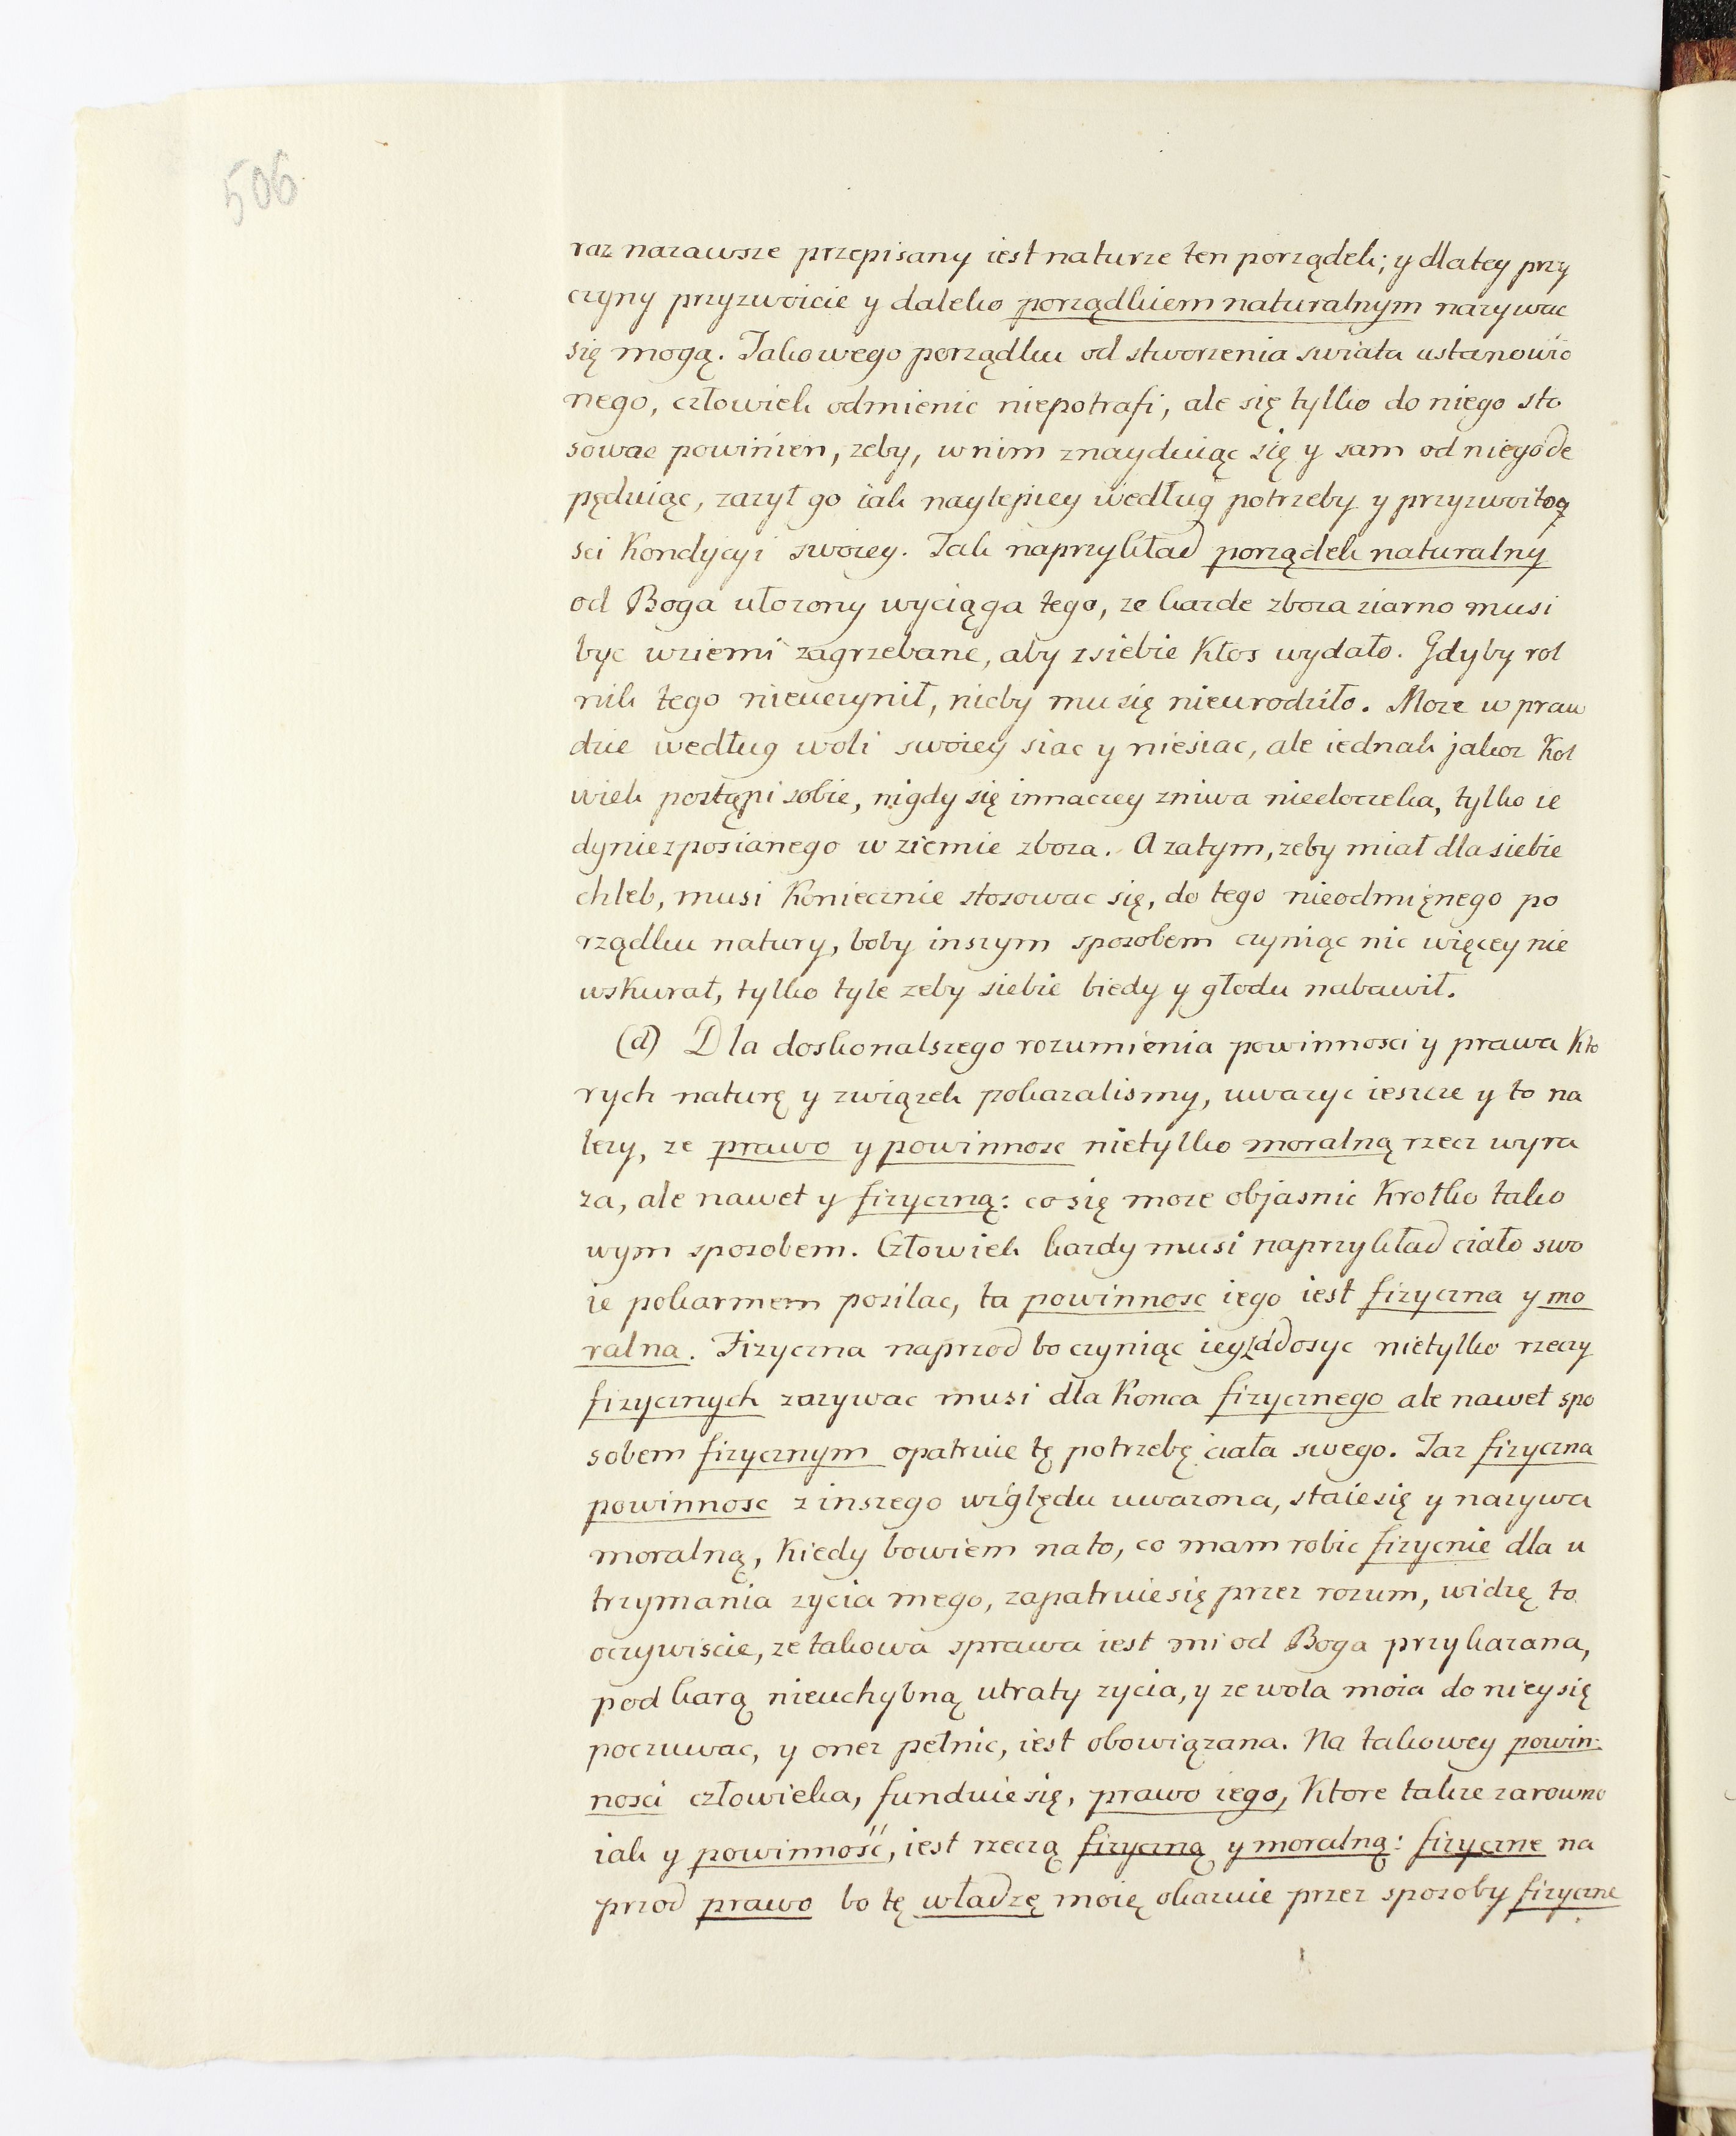 506
raz nazawsze przepisany iest naturze ten porządek; y dlatey przy
czyny przyzwoicie y daleko porządkiem naturalnym nazywac
się mogą. Takowego porządku od stworzenia swiata ustanowio
nego, człowiek odmienic niepotrafi, ale się tylko do niego sto
sowac powinien, zeby, wnim znayduiąc się y sam od niego de
pęduiąc, zazył go iak naylepiey według potrzeby y przyzwoito
sci Kondycyi swoiey. Tak naprzykład porządek naturalny
od Boga ułozony wyciąga tego, ze kazde zboza ziarno musi
byc wziemi zagrzebane, aby zsiebie Kłos wydało. Gdyby rol
nik tego nieuczynił, nicby mu się nieurodziło. Moze w praw
dzie według woli swoiey siac y niesiac, ale iednak jakoz Kol
wiek postąpi sobie, nigdy się innaczey zniwa niedoczeka, tylko ie
dyniezposianego w ziemie zboza. A zatym, zeby miał dla siebie
chleb, musi Koniecznie stosowac się, do tego nieodmięnego po
rządku natury, boby inszym sposobem czyniąc nic więcey nie
wskurał, tylko tyle zeby siebie biedy y głodu nabawił.
(d) Dla doskonalszego rozumienia powinnosci y prawa Kto
rych naturę y związek pokazalismy, uwazyc ieszcze y to na
lezy, ze prawo y powinnosc nietylko moralną rzecz wyra
za, ale nawet y fizyczną: co się moze objasnic Krotko tako
wym sposobem. Człowiek kazdy musi naprzykład ciało swo
ie pokarmem posilac, ta powinnosc iego iest fizyczna y mo
ralna. Fizyczna naprzod bo czyniąc iey zadosyc nietylko rzeczy
fizycznych zazywac musi dla Konca fizycznego ale nawet spo
sobem fizycznym opatruie tę potrzebę ciała swego. Taz fizyczna
powinnosc z inszego względu uwazona, staie się y nazywa
moralną, Kiedy bowiem na to, co mam robic fizycnie dla u
trzymania zycia mego, zapatruie się przez rozum, widzę to
oczywiscie, ze takowa sprawa iest mi od Boga przykazana,
pod karą nieuchybną utraty zycia, y ze wola moia do niey się
poczuwac, y onez pełnic, iest obowiązana. Na takowey powin-
nosci człowieka, funduie się, prawo iego, Ktore takze zarowno
iak y powinność, iest rzeczą fizyczną y moralną: fizyczne na
przod prawo bo tę władzę moię okazuie przez sposoby fizyczne